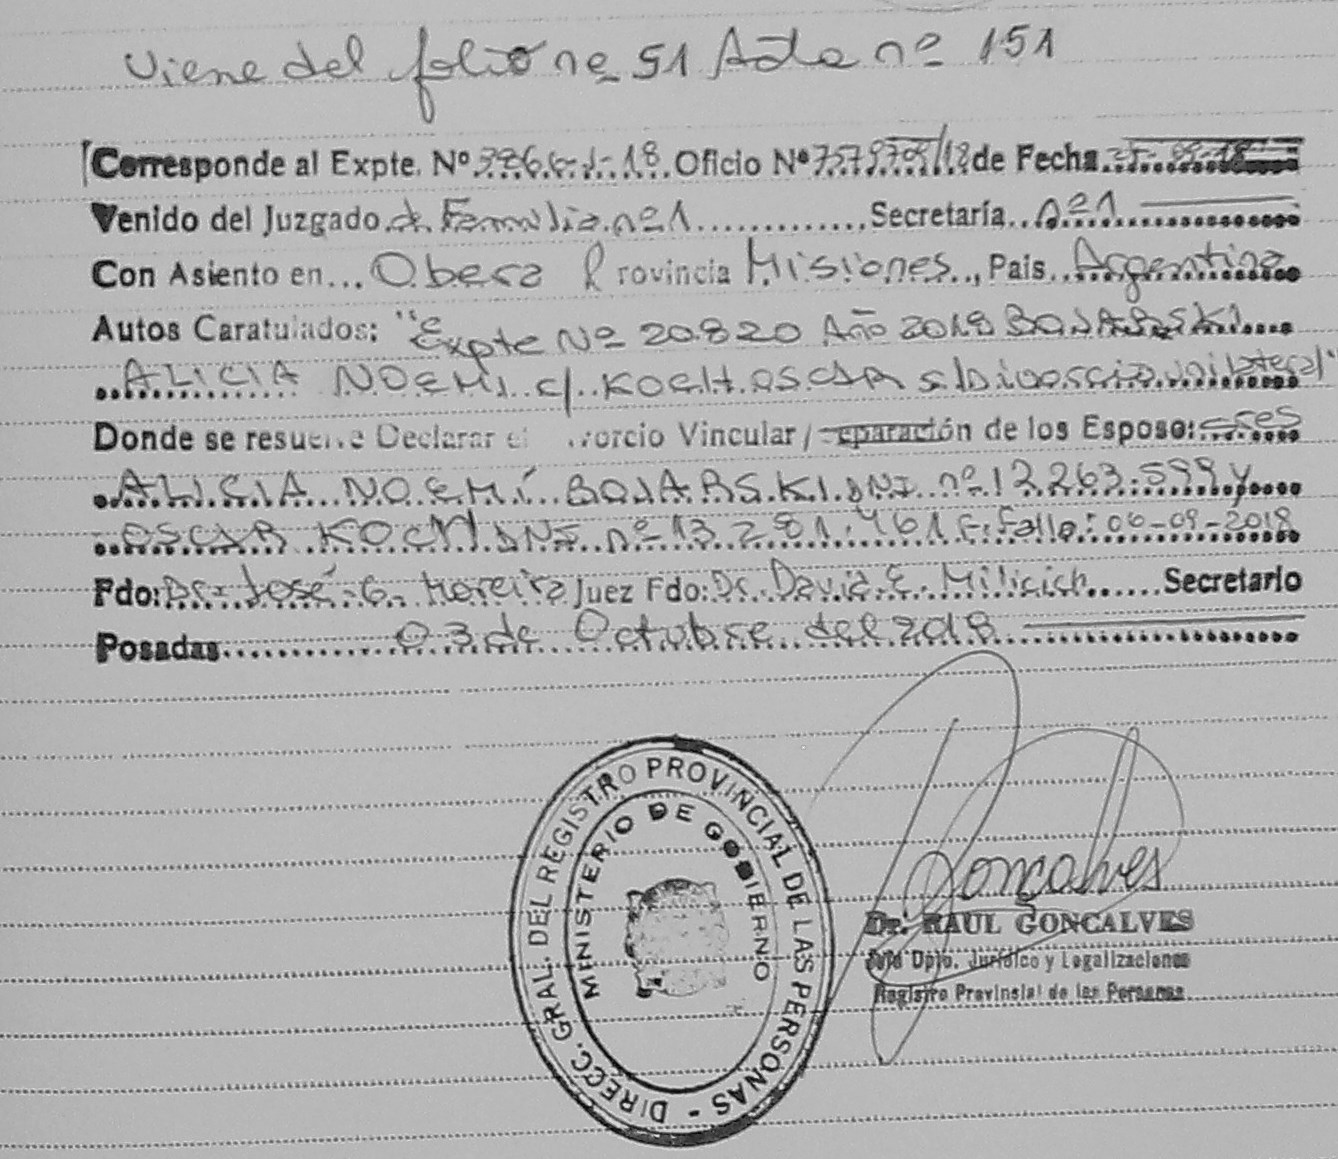 Viene del folio nº 51 Acta nº 151
Corresponde al Expte. Nº 3866-J-18. Oficio Nº de Fecha
Venido del Juzgado de Familia nº1 Secretaría nº1
Con Asiento en Obera Provincia Misiones, Pais Argentina
Autos Caratulados: "Expte Nº 20820 Año 2018 BOJARSKI
ALICIA NOEMI c/ KOCH OSCAR s/Divorcio unilateral"
Donde se resuelve Declarar el Divorcio Vincular / Separación de los Esposos: Sres
ALICIA NOEMÍ BOJARSKI DNI nº 12.263.599 y
OSCAR KOCH DNI nº 13.281.461 F. Fallo: 06-09-2018
Fdo: Dr. José G. Moreira Juez Fdo: Dr. David E. Milicich Secretario
Posadas 03 de Octubre del 2018
DIRECC. GRAL. DEL REGISTRO PROVINCIAL DE LAS PERSONAS -
MINISTERIO DE GOBIERNO
Goncalves
Dr. RAUL GONCALVES
Jefe Dpto. Jurídico y Legalizaciones
Registro Provincial de las Personas